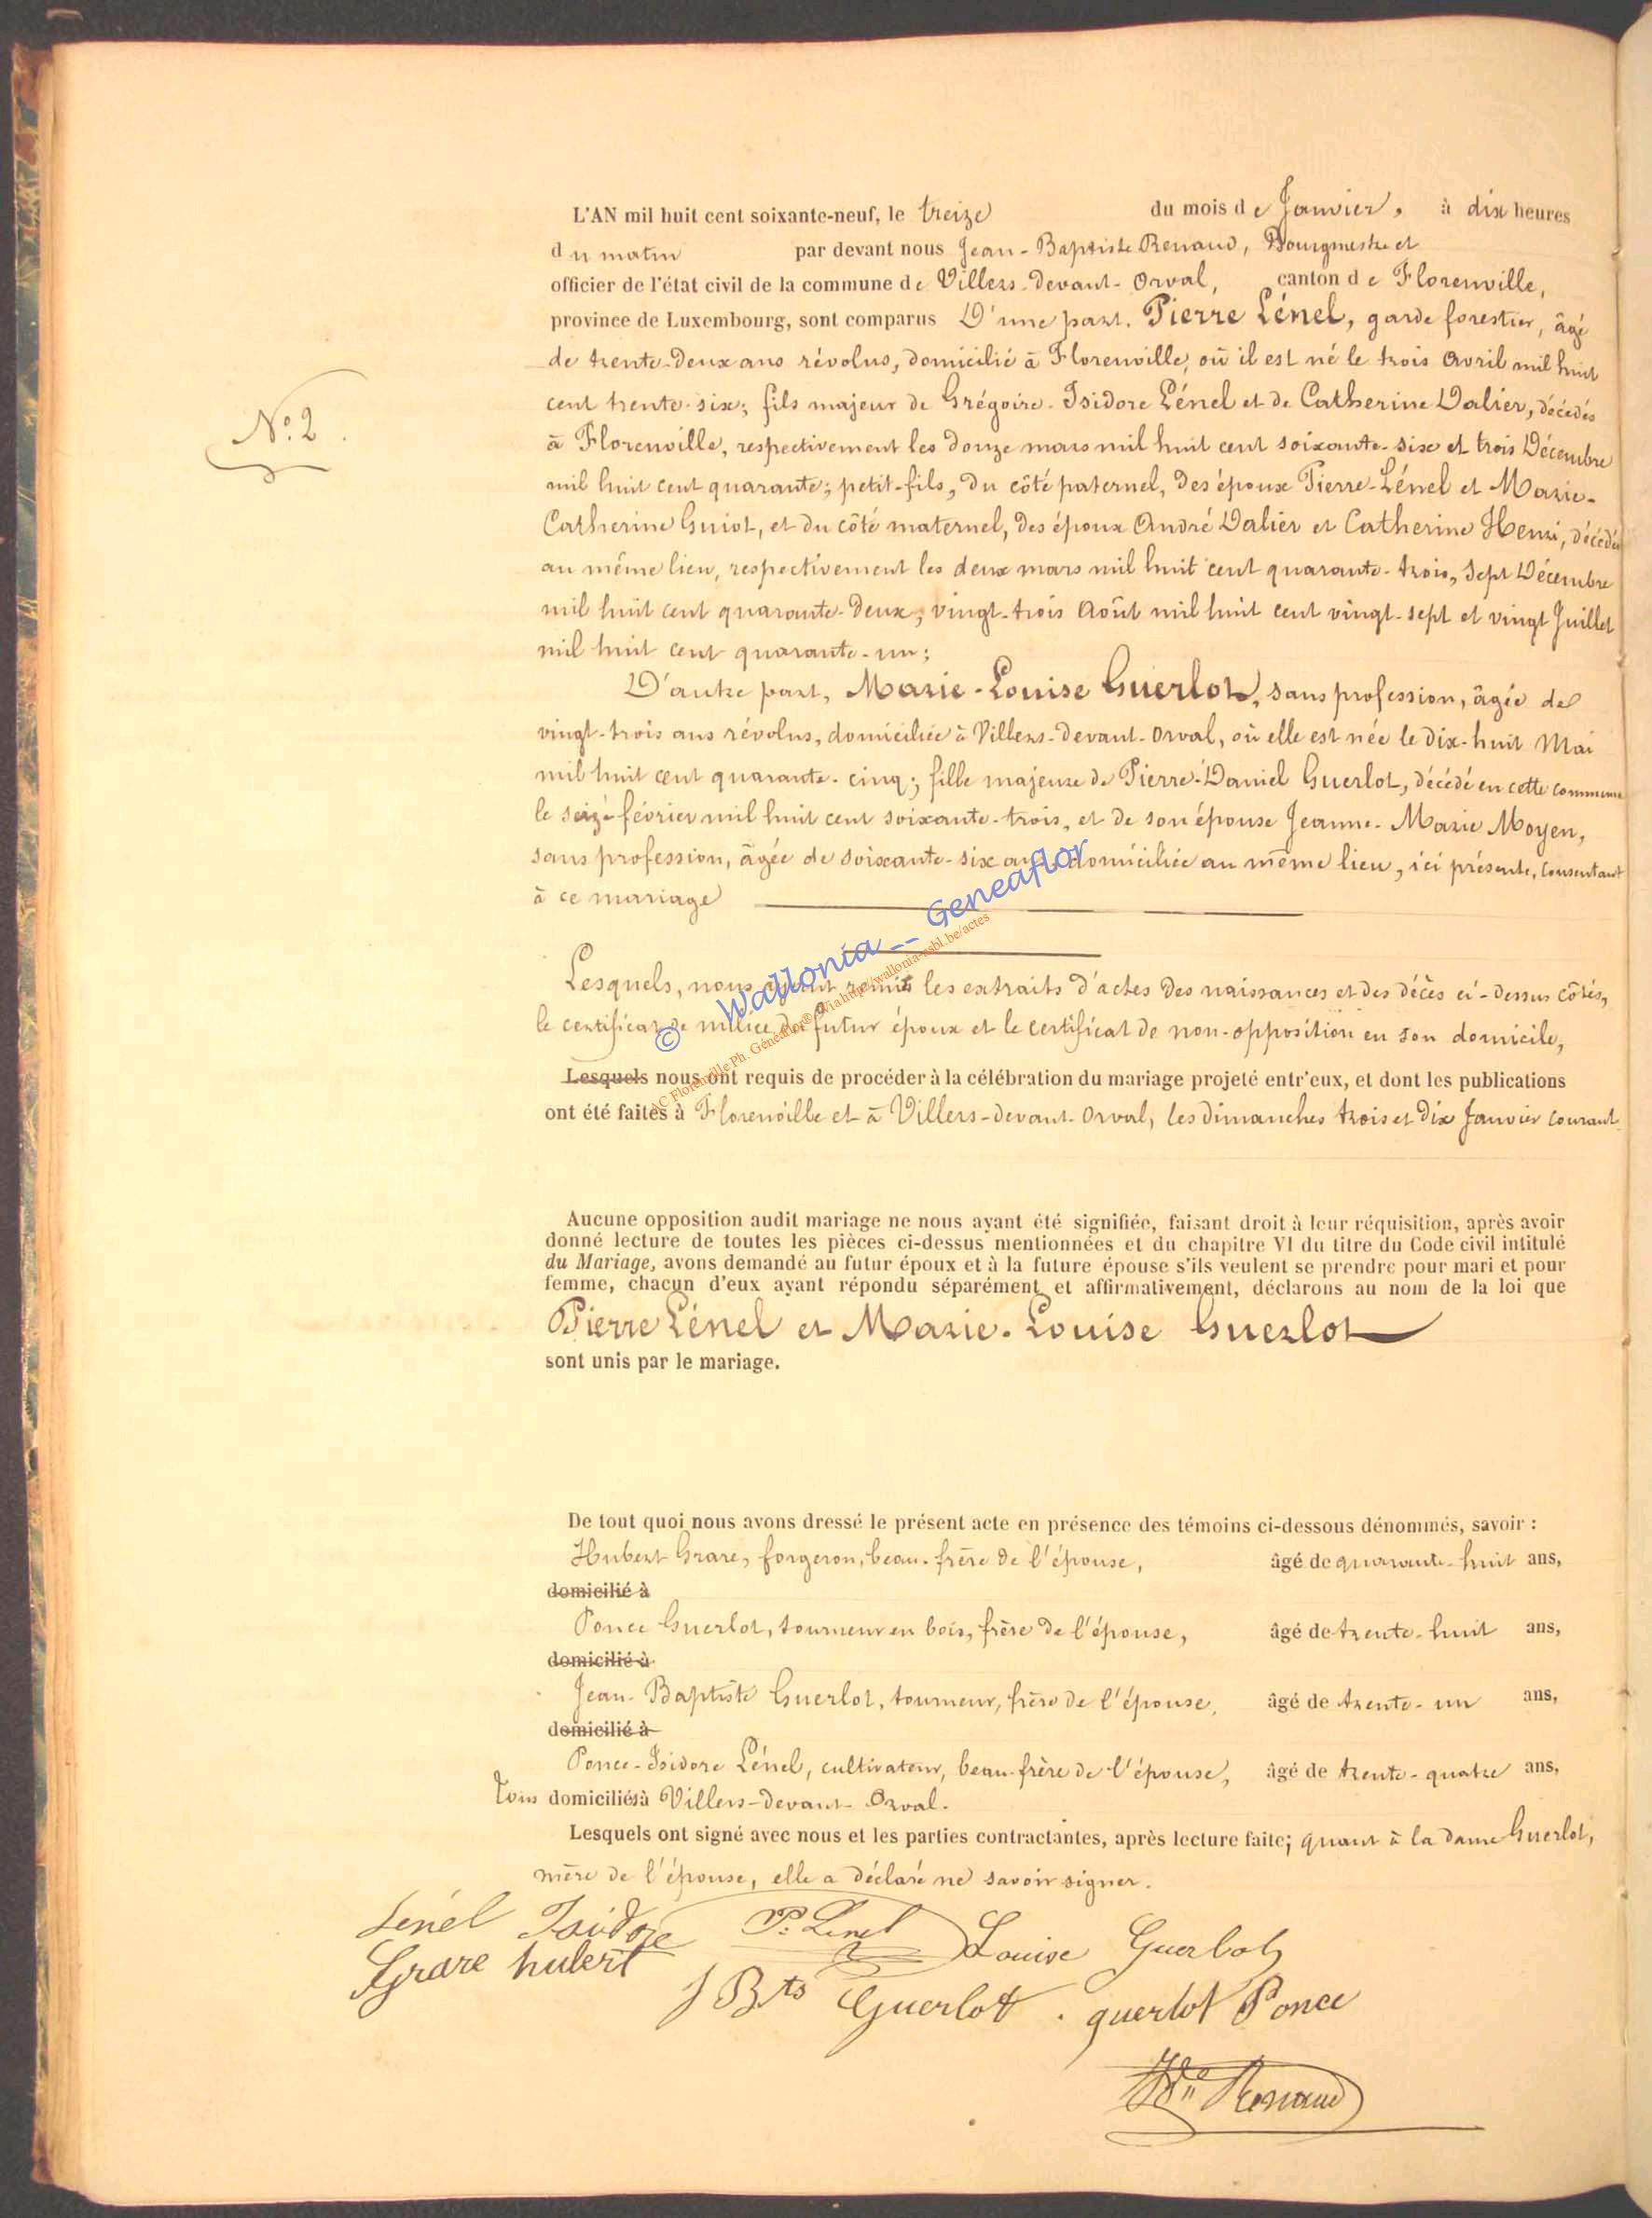 L'AN mil huit cent soixante-neuf, le treize du mois de Janvier, à dix heures
du matin par devant nous Jean-Baptiste Renaud, Bourgmestre et
officier de l'état civil de la commune de Villers-devant-Orval, canton de Florenville,
province de Luxembourg, sont comparus D'une part. Pierre Lénel, garde forestier, âgé
de trente-deux ans révolus, domicilié à Florenville, où il est né le trois Avril mil huit
N°. 2.
cent trente-six; fils majeur de Grégoire-Isidore Lénel et de Catherine Dalier, décédés
à Florenville, respectivement les douze mars mil huit cent soixante-six et trois Décembre
mil huit cent quarante; petit-fils, du côté paternel, des époux Pierre-Lénel et Marie-
Catherine Guiot, et du côté maternel, des époux André Dalier et Catherine Henri, décédés
au même lieu, respectivement les deux mars mil huit cent quarante-trois, sept Décembre
mil huit cent quarante-deux, vingt-trois Août mil huit cent vingt-sept et vingt Juillet
mil huit cent quarante-un;
D'autre part, Marie-Louise Guerlot, sans profession, âgée de
vingt-trois ans révolus, domiciliée à Villers-devant-Orval, où elle est née le dix-huit Mai
mil huit cent quarante-cinq; fille majeure de Pierre-Daniel Guerlot, décédé en cette commune
le seize février mil huit cent soixante-trois, et de son épouse Jeanne-Marie Moyen,
sans profession, âgée de soixante-six ans, domiciliée au même lieu, ici présente, consentant
à ce mariage
Lesquels, nous ayant remis les extraits d'actes des naissances et des décès ci-dessus côtés,
le certificat de milice du futur époux et le certificat de non-opposition en son domicile,
Lesquels nous ont requis de procéder à la célébration du mariage projeté entr'eux, et dont les publications
ont été faites à Florenville et à Villers-devant-Orval, les dimanches trois et dix Janvier courant.
© Wallonia -- Geneaflor
AC Florenville Ph. Géneaflor® Via http://wallonia-asbl.be/actes
Aucune opposition audit mariage ne nous ayant été signifiée, faisant droit à leur réquisition, après avoir
donné lecture de toutes les pièces ci-dessus mentionnées et du chapitre VI du titre du Code civil intitulé
du Mariage, avons demandé au futur époux et à la future épouse s'ils veulent se prendre pour mari et pour
femme, chacun d'eux ayant répondu séparément et affirmativement, déclarons au nom de la loi que
Pierre Lénel et Marie-Louise Guerlot
sont unis par le mariage.
De tout quoi nous avons dressé le présent acte en présence des témoins ci-dessous dénommés, savoir :
Hubert Grare, forgeron, beau-frère de l'épouse, âgé de quarante-huit ans,
domicilié à
Ponce Guerlot, tourneur en bois, frère de l'épouse, âgé de trente-huit ans,
domicilié à
Jean-Baptiste Guerlot, tourneur, frère de l'épouse, âgé de trente-un ans,
domicilié à
Ponce-Isidore Lénel, cultivateur, beau-frère de l'épouse, âgé de trente-quatre ans,
Tous domiciliés à Villers-devant-Orval.
Lesquels ont signé avec nous et les parties contractantes, après lecture faite; quant à la dame Guerlot,
mère de l'épouse, elle a déclaré ne savoir signer.
Lénel Isidore P. Lenel Louise Guerlot
Grare hubert
J Bte Guerlot. guerlot Ponce
Renaud